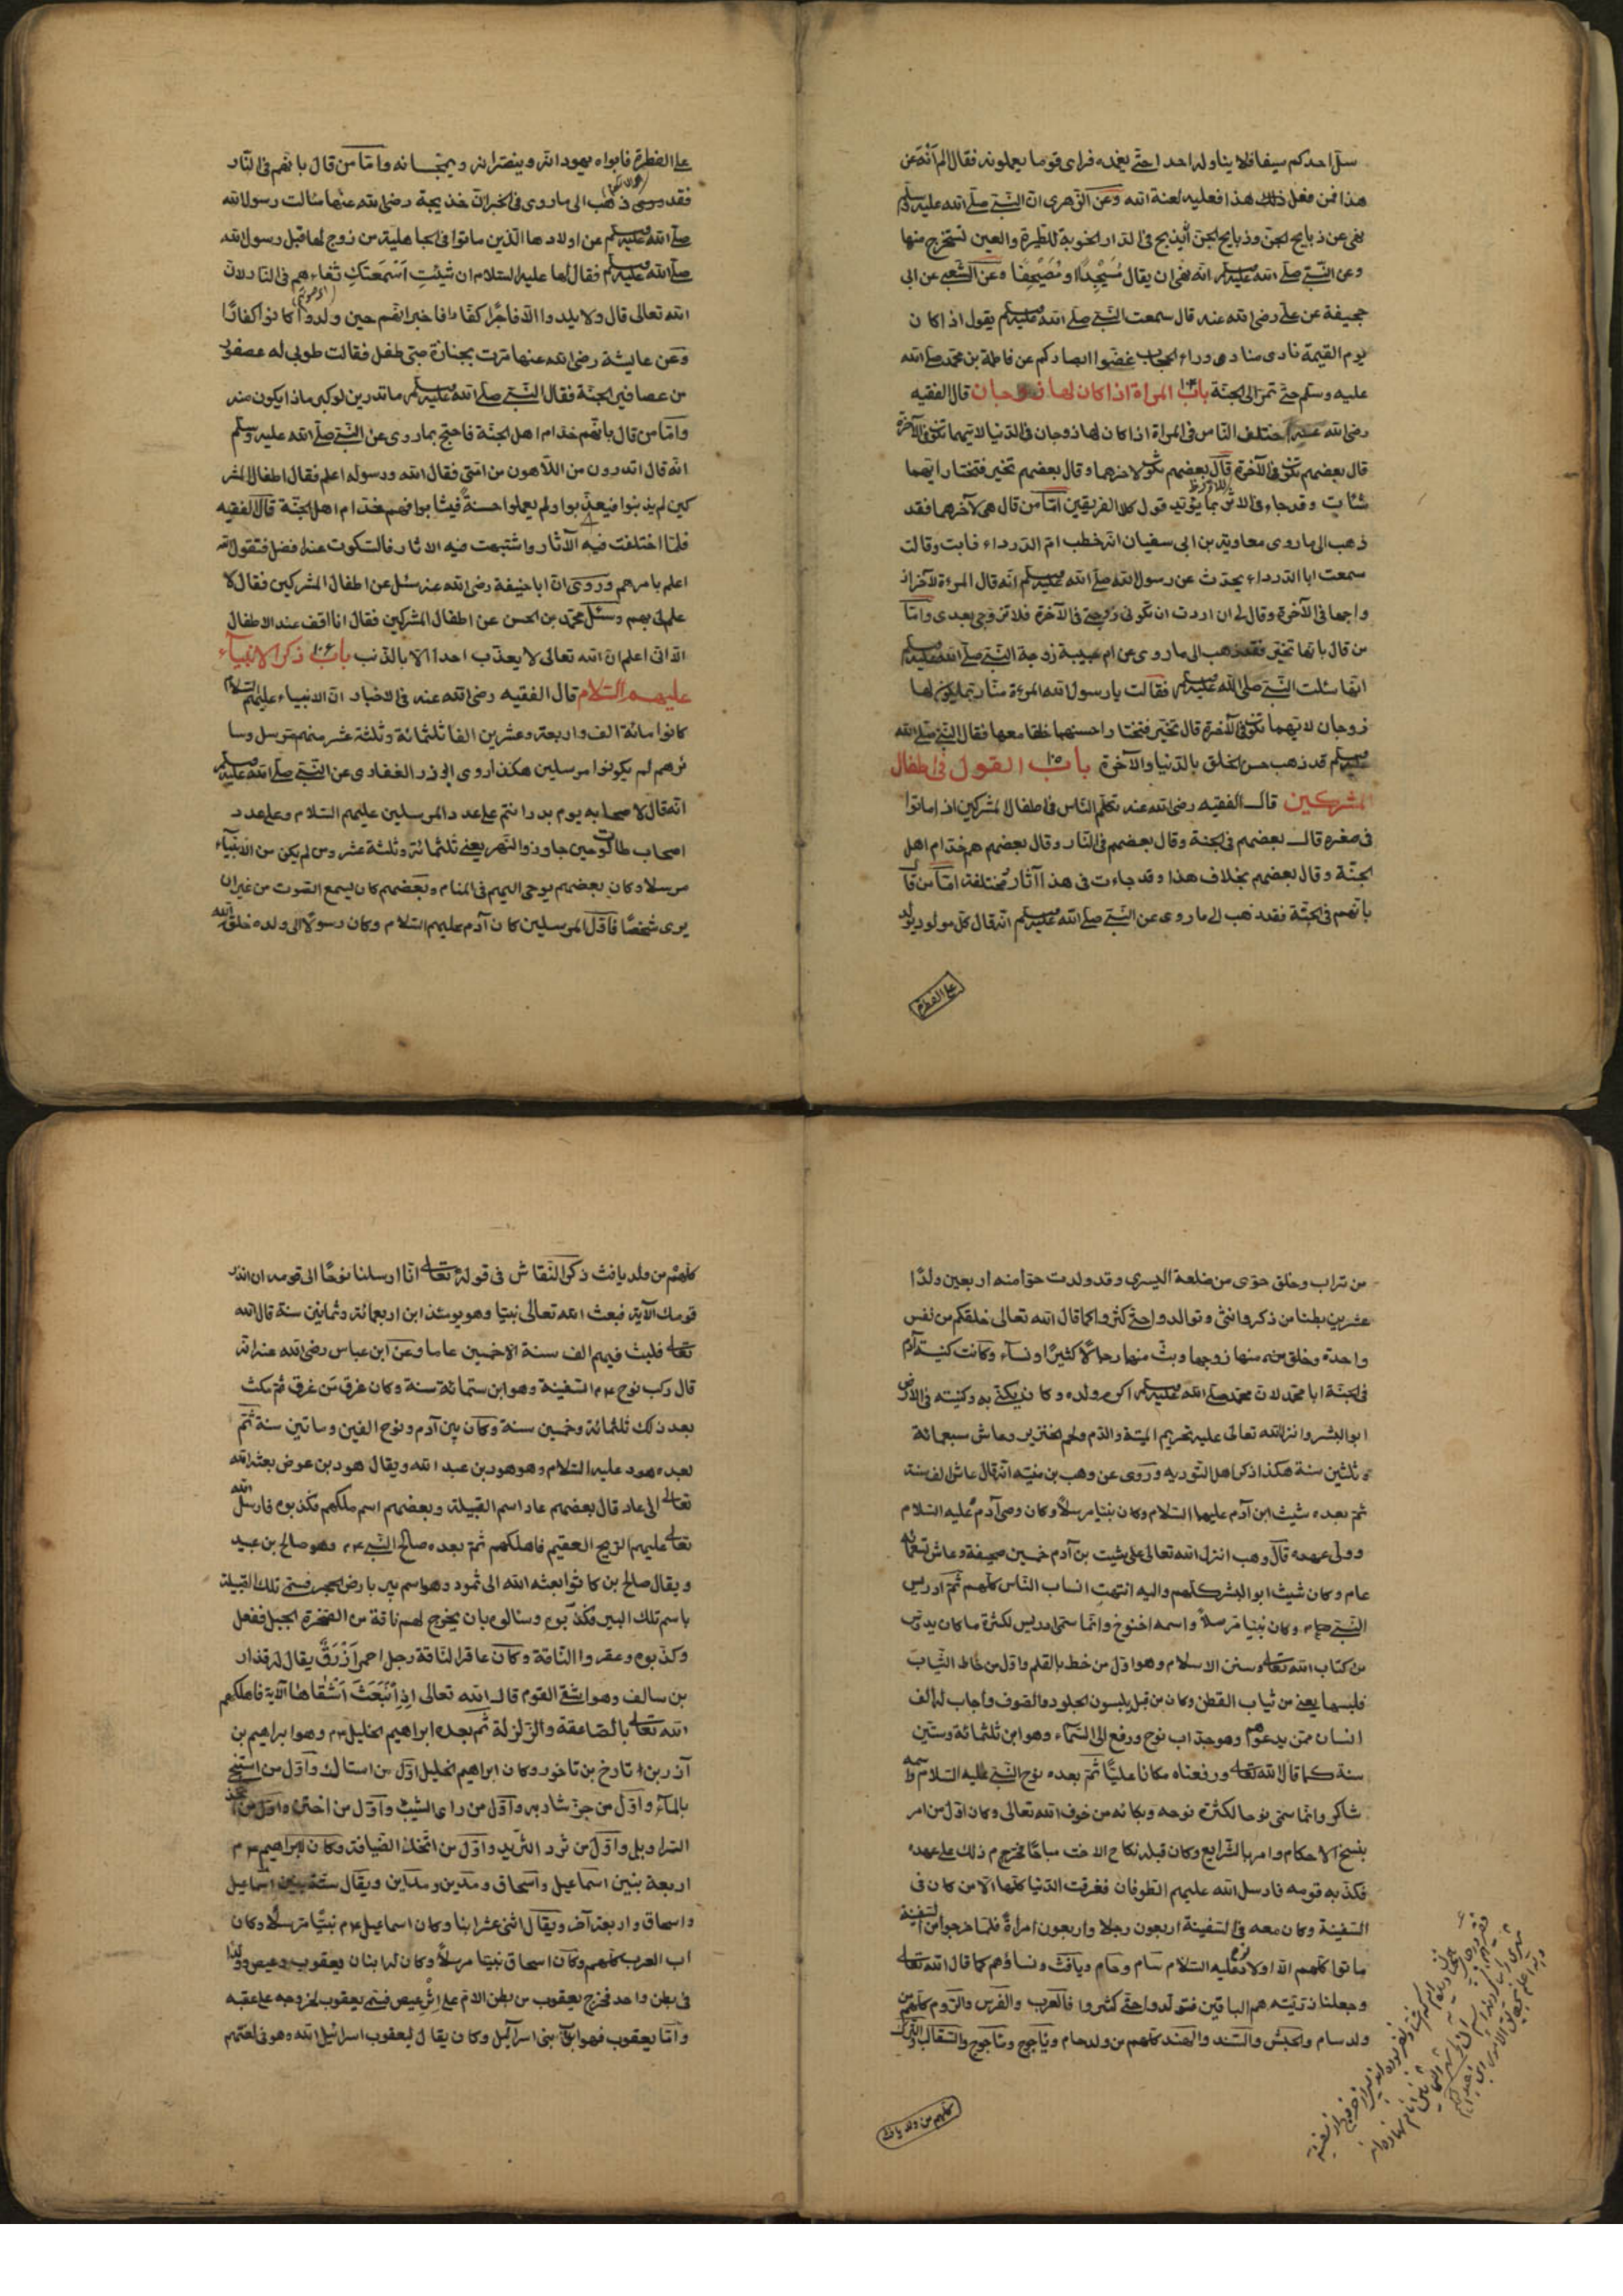 سل احدكم سيفا فلا يناوله احدا حتى يغمده فراى قوما يعملونه فقال الم انه عن
هذا فمن فعل ذلك هذا فعليه لعنة الله وعن الزهرى ان النبى صلى الله عليه وسلم
نهى عن ذبايح الجن وذبايح الجن ان يذبح فى الدار الخوبة للطيرة والعين لتخرج منها
وعن النبى صلى الله عليه وسلم انه نهى ان يقال مُسَيْجِدًا او مُصَيْحِفًا وعن الشعبى عن ابى
جحيفة عن على رضى الله عنه قال سمعت النبى صلى الله عليه وسلم يقول اذا كان
يوم القيمة نادى منادى وراء الحجاب غضوا ابصاركم عن فاطمة بن محمد صلى الله
عليه وسلم حتى تمر الى الجنة باب ١٠٤ المراة اذا كان لها زوجان قال الفقيه
رضى الله عنه اختلف الناس فى المراة اذا كان لها زوجان فى الدنيا لايهما تكون فى الآخرة
قال بعضهم تكون فى الآخرة قال بعضهم تكون لاخرهما وقال بعضهم تخير فتختار ايهما
شئات وقد جاء فى الاثر بما يؤيد قول كلا الفريقين امّا من قال هى لآخرهما فقد
ذهب الى ما روى معاوية بن ابى سفيان انه خطب ام الدرداء فابت وقالت
سمعت ابا الدرداء يحدث عن رسول الله صلى الله عليه وسلم انه قال المرءة لآخر از
واجها فى الآخرة وقال لى ان اردت ان تكونى زوجتى فى الآخرة فلا تزوجى بعدى وامّا
من قال بانها تخير فقد ذهب الى ما روى عن ام حبيبة زوجة النبى صلى الله عليه وسلم
انها سئلت النبى صلى الله عليه وسلم فقالت يا رسول الله المرءة منّا ربما يكون لها
زوجان لايهما تكون فى الآخرة قال تخير فتختار احسنهما خلقا معها فقال النبى صلى الله
عليه وسلم قد ذهب حسن الخلق بالدنيا والآخرة باب ١٠٥ القول فى اطفال
المشركين قال الفقيه رضى الله عنه تكلم الناس فى اطفال المشركين اذا ماتوا
فى صغره قال بعضهم فى الجنة وقال بعضهم فى النار وقال بعضهم هم خدام اهل
الجنّة وقال بعضهم بخلاف هذا وقد جاءت فى هذا آثار مختلفة امّا من قا
بانهم فى الجنة فقد ذهب الى ما روى عن النبى صلى الله عليه وسلم انه قال كل مولود يولد
على الفطرة
على الفطرة فابواه يهودانه وينصرانه ويمجسانه وامّا من قال بانهم فى النار
فقد ذهب الى ما روى فى الخبر ان خديجة رضى الله عنها سالت رسول الله
صلى الله عليه وسلم عن اولادها الذين ماتوا فى الجاهلية من زوج لها قبل رسول الله
صلى الله عليه وسلم فقال لها عليه السلام ان شِئْتِ اَسْمَعْتُكِ ثغاءهم فى النار لان
الله تعالى قال ولا يلدوا الّا فاجرًا كفّارا فاخبر انهم حين ولدوا كانوا كفارًا
وعن عايشة رضى الله عنها مرت بجنازة صبى طفل فقالت طوبى له عصفور
من عصافير الجنة فقال النبى صلى الله عليه وسلم ما تدرين لو كبر ماذا يكون منه
وامّا من قال بانهم خدام اهل الجنّة فاحتج بما روى عن النبى صلى الله عليه وسلم
انه قال اتدرون من اللاهون من امتى فقال الله ورسوله اعلم فقال اطفال المشر
كين لم يذنبوا فيعذبوا ولم يعملوا حسنةً فيثابوا فهم خدام اهل الجنّة قال الفقيه
فلمّا اختلفت فيه الآثار واشتبهت فيه الاثار فالسكوت عنه افضل فنقول الله
اعلم بامرهم وروى ان ابا حنيفة رضى الله عنه سئل عن اطفال المشركين فقال لا
علم لى بهم وسئل محمد بن الحسن عن اطفال المشركين فقال انا اقف عند الاطفال
الا انى اعلم ان الله تعالى لا يعذب احدا الّا بالذنب باب ١٠٦ ذكر الانبياء
عليهم السلام قال الفقيه رضى الله عنه فى الاخبار ان الانبياء عليهم السلام
كانوا مائة الف واربعة وعشرين الفا ثلثمائة وثلثة عشر منهم مرسل وسا
ئرهم لم يكونوا مرسلين هكذا روى ابى ذر الغفارى عن النبى صلى الله عليه وسلم
انه قال لاصحابه يوم بدر انتم على عدد المرسلين عليهم السلام وعلى عدد
اصحاب طالوت حين جاوزوا النهر يعنى ثلثمائة وثلثة عشر ومن لم يكن من الانبياء
مرسلا وكان بعضهم يوحى اليهم فى المنام وبعضهم كان يسمع الصوت من غير ان
يرى شخصًا فاوّل المرسلين كان آدم عليهم السلام وكان رسولًا الى ولده خلق الله
من تراب وخلق حوّى من ضلعة اليسرى وقد ولدت حوا منه اربعين ولدًا
عشرين بطنا من ذكر وانثى وتوالدوا حتى كثروا كما قال الله تعالى خلقكم من نفس
واحدة وخلق منها زوجها وبثّ منهما رجالًا كثيرًا ونساء وكانت كنية آدم
فى الجنّة ابا محمد لان محمد صلى الله عليه وسلم اكرم ولده وكان يكنى به وكنيته فى الارض
ابو البشر وانزل الله تعالى عليه تحريم الميتة والدم ولحم الخنزير وعاش سبعمائة
وثلثين سنة هكذا ذكر اهل التوريه وروى عن وهب بن منبه انه قال عاش الف سنة
ثم بعده شيث ابن آدم عليهما السلام وكان نبيًا مرسلًا وكان وصى آدم عليه السلام
وولى عهده قال وهب انزل الله تعالى على شيث بن آدم خمسين صحيفة وعاش تسعمائة
عام وكان شيث ابو البشر كلهم واليه انتهت انساب الناس كلهم ثم ادريس
النبى وكان نبيًا مرسلًا واسمه اخنوخ وانما سمى ادريس لكثرة ما كان يدرس
من كتاب الله تعالى وسنن الاسلام وهو اوّل من خط بالقلم واوّل من خاط الثياب
فلبسها يعنى من ثياب القطن وكان من قبل يلبسون الجلود والصوف واجاب له الف
انسان ممن يدعوهم وهو جدّ اب نوح ورفع الى السماء وهو ابن ثلثمائة وستين
سنة كما قال الله تعالى ورفعناه مكانا عليّا ثم بعده نوح النبى عليه السلام واسمه
شاكر وانما سمى نوحا لكثرة نوحه وبكائه من خوف الله تعالى وكان اوّل من امر
بنسخ الاحكام وامر بالشرايع وكان قبله نكاح الاخت مباحًا فحرم ذلك على عهده
فكذبه قومه فارسل الله عليهم الطوفان فغرقت الدنيا كلها الّا من كان فى
السفينة وكان معه فى السفينة اربعون رجلا واربعون امراةً فلما خرجوا من السفينة
ماتوا كلهم الّا اولاد نوح عليه السلام سام وحام ويافث ونساؤهم كما قال الله تعالى
وجعلنا ذريته هم الباقين فتولدوا حتى كثروا فالعرب والفرس والروم كلهم من
ولد سام والحبش والسند والهند كلهم من ولد حام وياجوج وماجوج والسقالب والترك
كلهم من ولد يافث
كلهم من ولد يافث ذكر النقاش فى قوله تعالى انا ارسلنا نوحًا الى قومه ان انذر
قومك الآية فبعث الله تعالى نبيًا وهو يومئذ ابن اربعمائة وثمانين سنة قال الله
تعالى فلبث فيهم الف سنة الا خمسين عاما وعن ابن عباس رضى الله عنه انه
قال ركب نوح السفينة وهو ابن ستمائة سنة وكان غرق من غرق ثم مكث
بعد ذلك ثلثمائة وخمسين سنة وكان بين آدم ونوح الفين وماتين سنة ثم
بعده هود عليه السلام وهو هود بن عبد الله ويقال هود بن عوض بعثه الله
تعالى الى عاد قال بعضهم عاد اسم القبيلة وبعضهم اسم ملكهم فكذبوه فارسل الله
تعالى عليهم الريح العقيم فاهلكهم ثم بعده صالح النبى وهو صالح بن عبيد
ويقال صالح بن كانوا بعثه الله الى ثمود وهو اسم بير بارض الحجر فسمى تلك القبيلة
باسم تلك البير فكذبوه وسالوه بان يخرج لهم ناقة من الصخرة الجبل ففعل
وكذبوه وعقروا الناقة وكان عاقر الناقة رجل احمر اَزْرَقُ يقال له قذار
بن سالف وهو اشقى القوم قال الله تعالى اِذِ انْبَعَثَ اَشْقٰاهٰا الآية فاهلكهم
الله تعالى بالصاعقة والزلزلة ثم بعده ابراهيم الخليل وهو ابراهيم بن
آزر بن تارخ بن تاخور وكان ابراهيم الخليل اوّل من استاك واوّل من استنجى
بالماء واوّل من جزّ شاربه واوّل من راى الشيب واوّل من اختتن واوّل من اتخذ
السراويل واوّل من ثرد الثريد واوّل من اتخذ الضيافة وكان لابراهيم
اربعة بنين اسماعيل واسحاق ومدين ومداين ويقال ستة بنين اسماعيل
واسحاق واربعة آخر ويقال اثنى عشر ابنا وكان اسماعيل نبيًا مرسلًا وكان
اب العرب كلهم وكان اسحاق نبيا مرسلًا وكان له ابنان يعقوب وعيص ولدا
فى بطن واحد فخرج يعقوب من بطن الام على اثر عيص فسمى يعقوب لخروجه على عقبه
وامّا يعقوب فهو اب بنى اسرآئيل وكان يقال ليعقوب اسرائيل الله وهو فى لغتهم